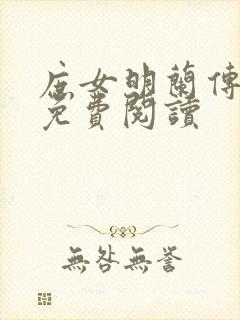 庶女明蘭傳
免費閱讀
無咎無譽